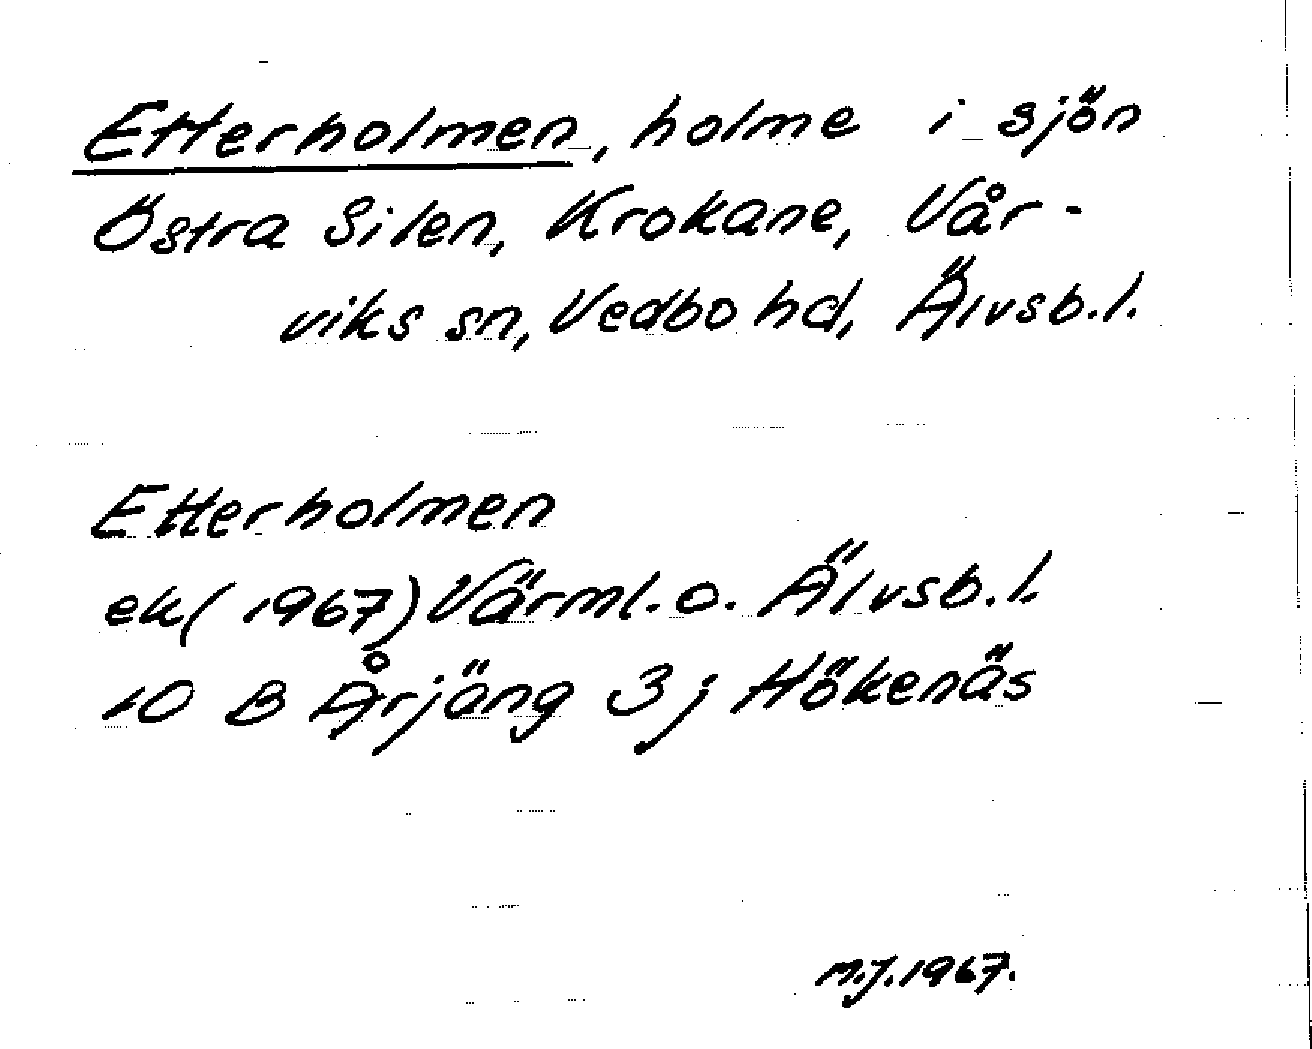 Etterholmen, holme i sjön
Östra Silen, Krokane, Vår-
viks sn, Vedbo hd, Älvsb.l.
Etterholmen
ek (1967) Värml. o. Älvsb.l.
10 B Årjäng 3 j Hökenäs
M.J.1967.